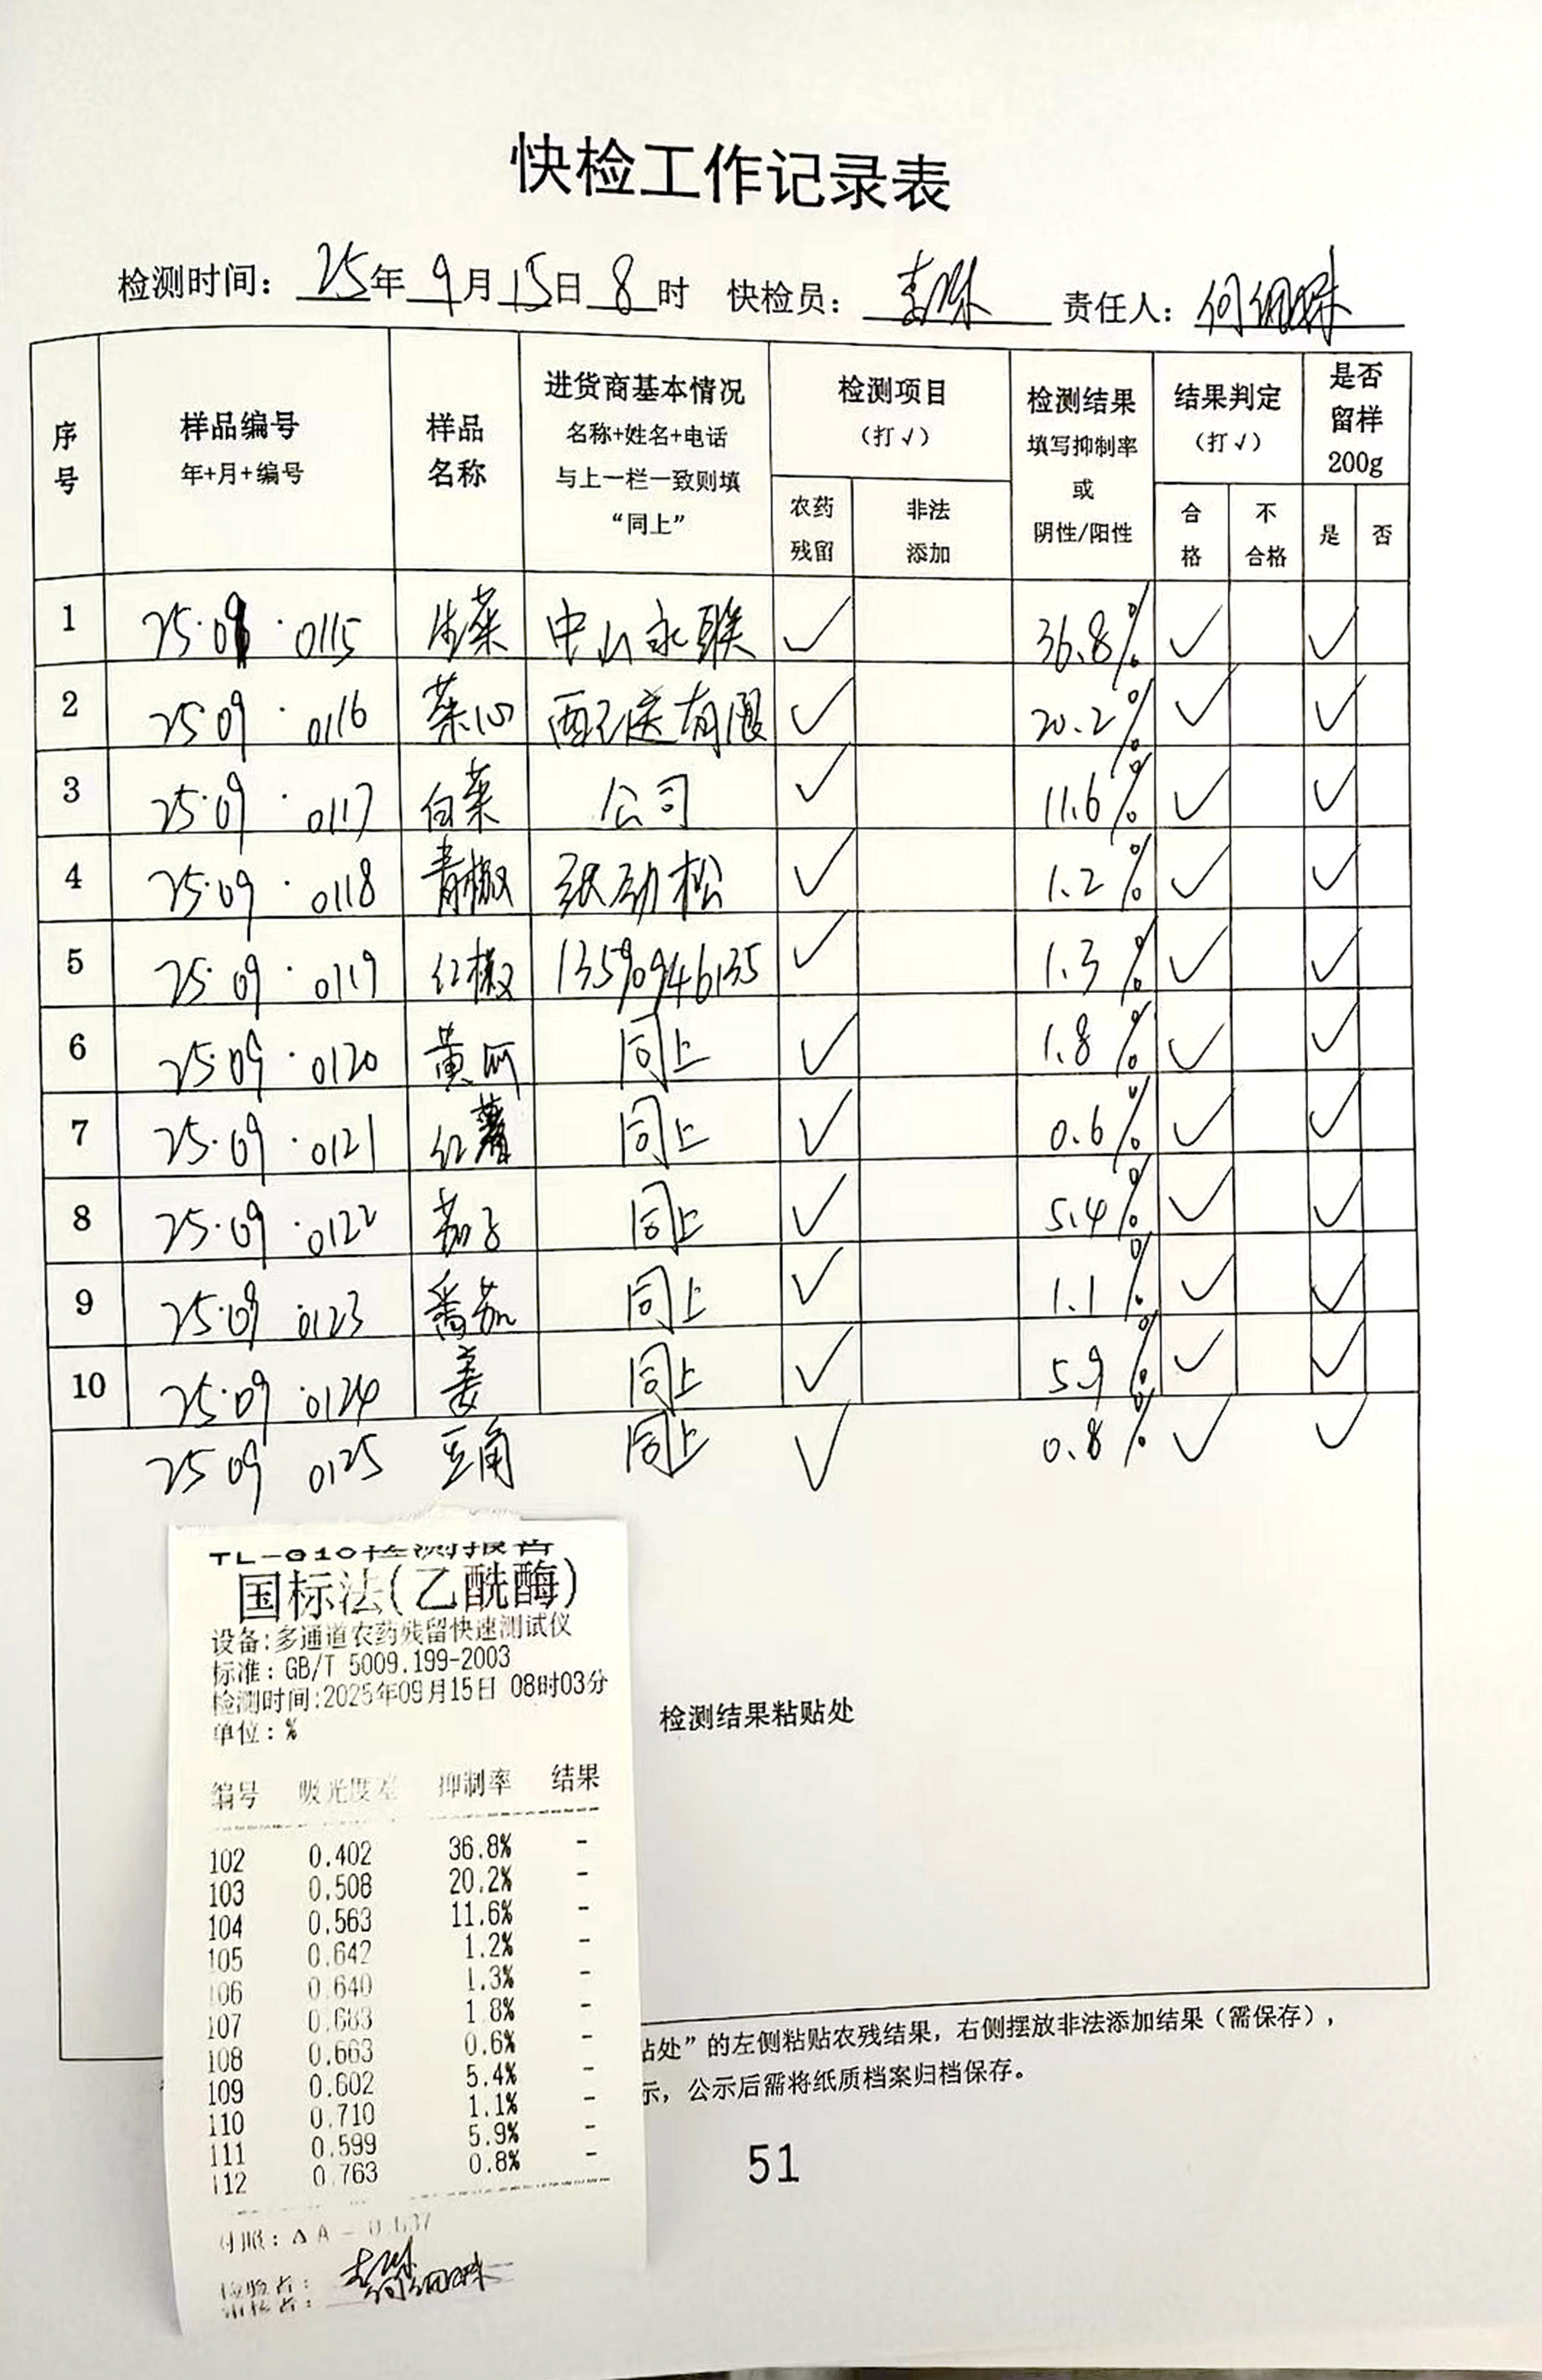 快检工作记录表
检测时间: 25年 9月 15日 8时 快检员: 责任人: 何
序号 样品编号 年+月+编号 样品名称 进货商基本情况 名称+姓名+电话 与上一栏一致则填“同上” 检测项目(打√) 检测结果 填写抑制率或阴性/阳性 结果判定(打√) 是否留样200g
农药残留 非法添加 合格 不合格 是 否
1 25·09·0115 生菜 中山永联 √ 36.8% √ √
2 2509·0116 菜心 配送有限 √ 20.2% √ √
3 25·09·0117 白菜 公司 √ 11.6% √ √
4 25·09·0118 青椒 张劲松 √ 1.2% √ √
5 25·09·0119 红椒 13590946135 √ 1.3% √ √
6 25·09·0120 黄瓜 同上 √ 1.8% √ √
7 25·09·0121 红薯 同上 √ 0.6% √ √
8 25·09·0122 茄子 同上 √ 5.4% √ √
9 25·09 0123 番茄 同上 √ 1.1% √ √
10 25·09·0124 姜 同上 √ 5.9% √ √
25 09 0125 豆角 同上 √ 0.8% √ √
TL-310检测报告
国标法(乙酰酶)
设备:多通道农药残留快速测试仪
标准: GB/T 5009.199-2003
检测时间:2025年09月15日 08时03分
单位: %
检测结果粘贴处
编号 吸光度差 抑制率 结果
102 0.402 36.8% -
103 0.508 20.2% -
104 0.563 11.6% -
105 0.642 1.2% -
106 0.640 1.3% -
107 0.683 1.8% -
108 0.663 0.6% -
109 0.602 5.4% -
110 0.710 1.1% -
111 0.599 5.9% -
112 0.763 0.8% -
对照: ΔA = 0.637
检验者:
审核者:
处”的左侧粘贴农残结果，右侧摆放非法添加结果（需保存），
示，公示后需将纸质档案归档保存。
51